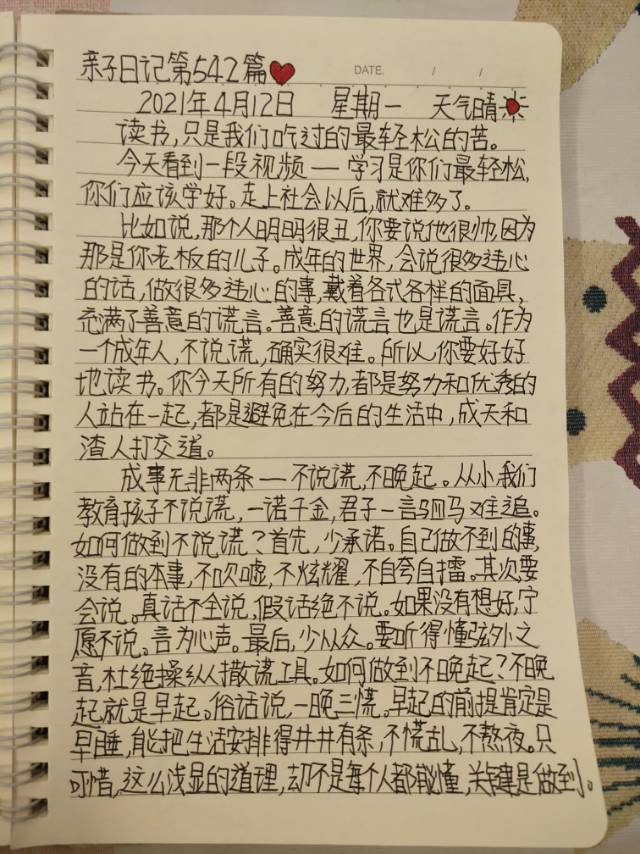 亲子日记第542篇
DATE. / /
2021年4月12日 星期一 天气晴
读书,只是我们吃过的最轻松的苦。
今天看到一段视频——学习是你们最轻松,
你们应该学好。走上社会以后,就难多了。
比如说,那个人明明很丑,你要说他很帅,因为
那是你老板的儿子。成年的世界,会说很多违心
的话,做很多违心的事,戴着各式各样的面具,
充满了善意的谎言。善意的谎言也是谎言。作为
一个成年人,不说谎,确实很难。所以你要好好
地读书。你今天所有的努力,都是努力和优秀的
人站在一起,都是避免在今后的生活中,成天和
渣人打交道。
成事无非两条——不说谎,不晚起。从小我们
教育孩子不说谎,一诺千金,君子一言驷马难追。
如何做到不说谎?首先,少承诺。自己做不到的事,
没有的本事,不吹嘘,不炫耀,不自夸自擂。其次要
会说。真话不全说,假话绝不说。如果没有想好,宁
愿不说。言为心声。最后,少从众。要听得懂弦外之
音,杜绝操纵人撒谎工具。如何做到不晚起?不晚
起就是早起。俗话说,一晚三慌。早起的前提肯定是
早睡,能把生活安排得井井有条,不慌乱,不熬夜。只
可惜,这么浅显的道理,却不是每个人都能懂,关键是做到。